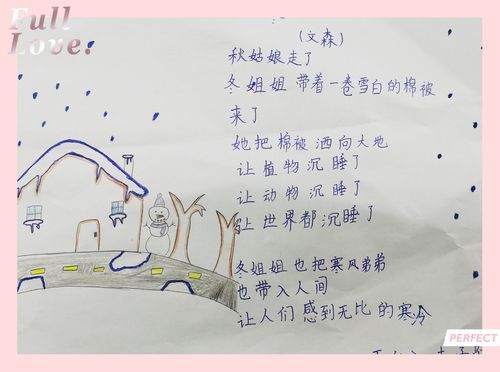 Full
Love.
(文森)
秋姑娘走了
冬姐姐带着一卷雪白的棉被
来了
她把棉被洒向大地
让植物沉睡了
让动物沉睡了
让世界都沉睡了
冬姐姐也把寒风弟弟
也带入人间
让人们感到无比的寒冷
PERFECT